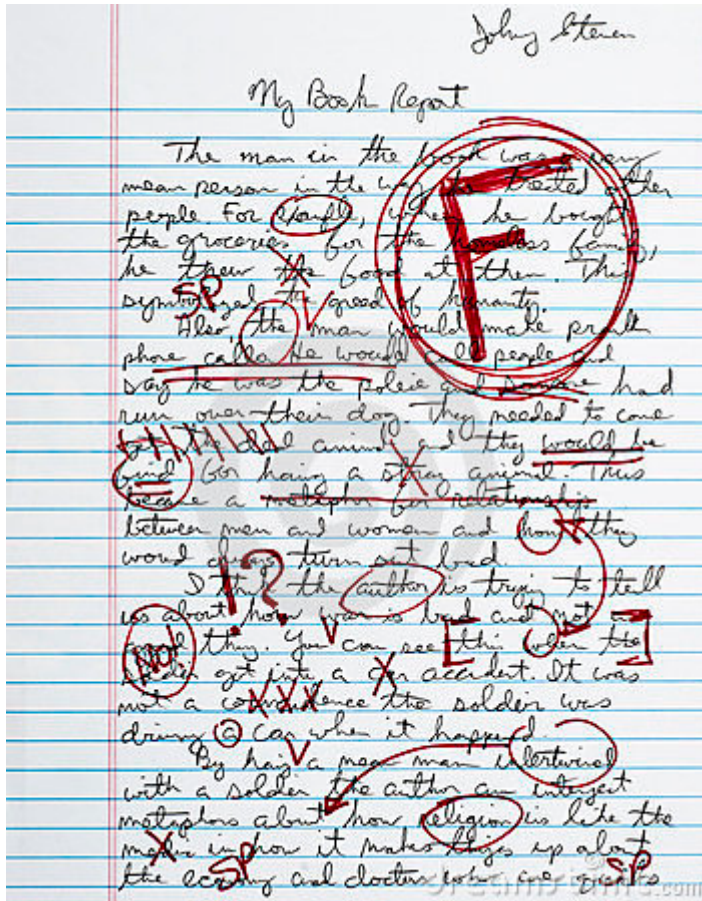 Johny Steven
My Book Report
The man in the book was a very
mean person in the way he treated other
people. For example, when he bought
the groceries for the homeless family,
he threw the food at them. This
SP
symbolized the greed of humanity.
Also, the man would make prank
phone calls. He would call people and
say he was the police and had
run over their dog. They needed to come
get the dead animal and they would be
fined for having a stray animal. This
became a metaphor for relationships
between men and women and how they
would always turn out bad.
!?
I think the author is trying to tell
us about how war is bad and not a
NO!
good thing. You can see this when the
soldier got into a car accident. It was
not a coincidence the soldier was
driving a car when it happened.
By having a mean man intertwined
with a soldier the author can interject
metaphors about how religion is like the
media in how it makes things up about
SP SP
the economy and doctors who are
F
dreamstime.com